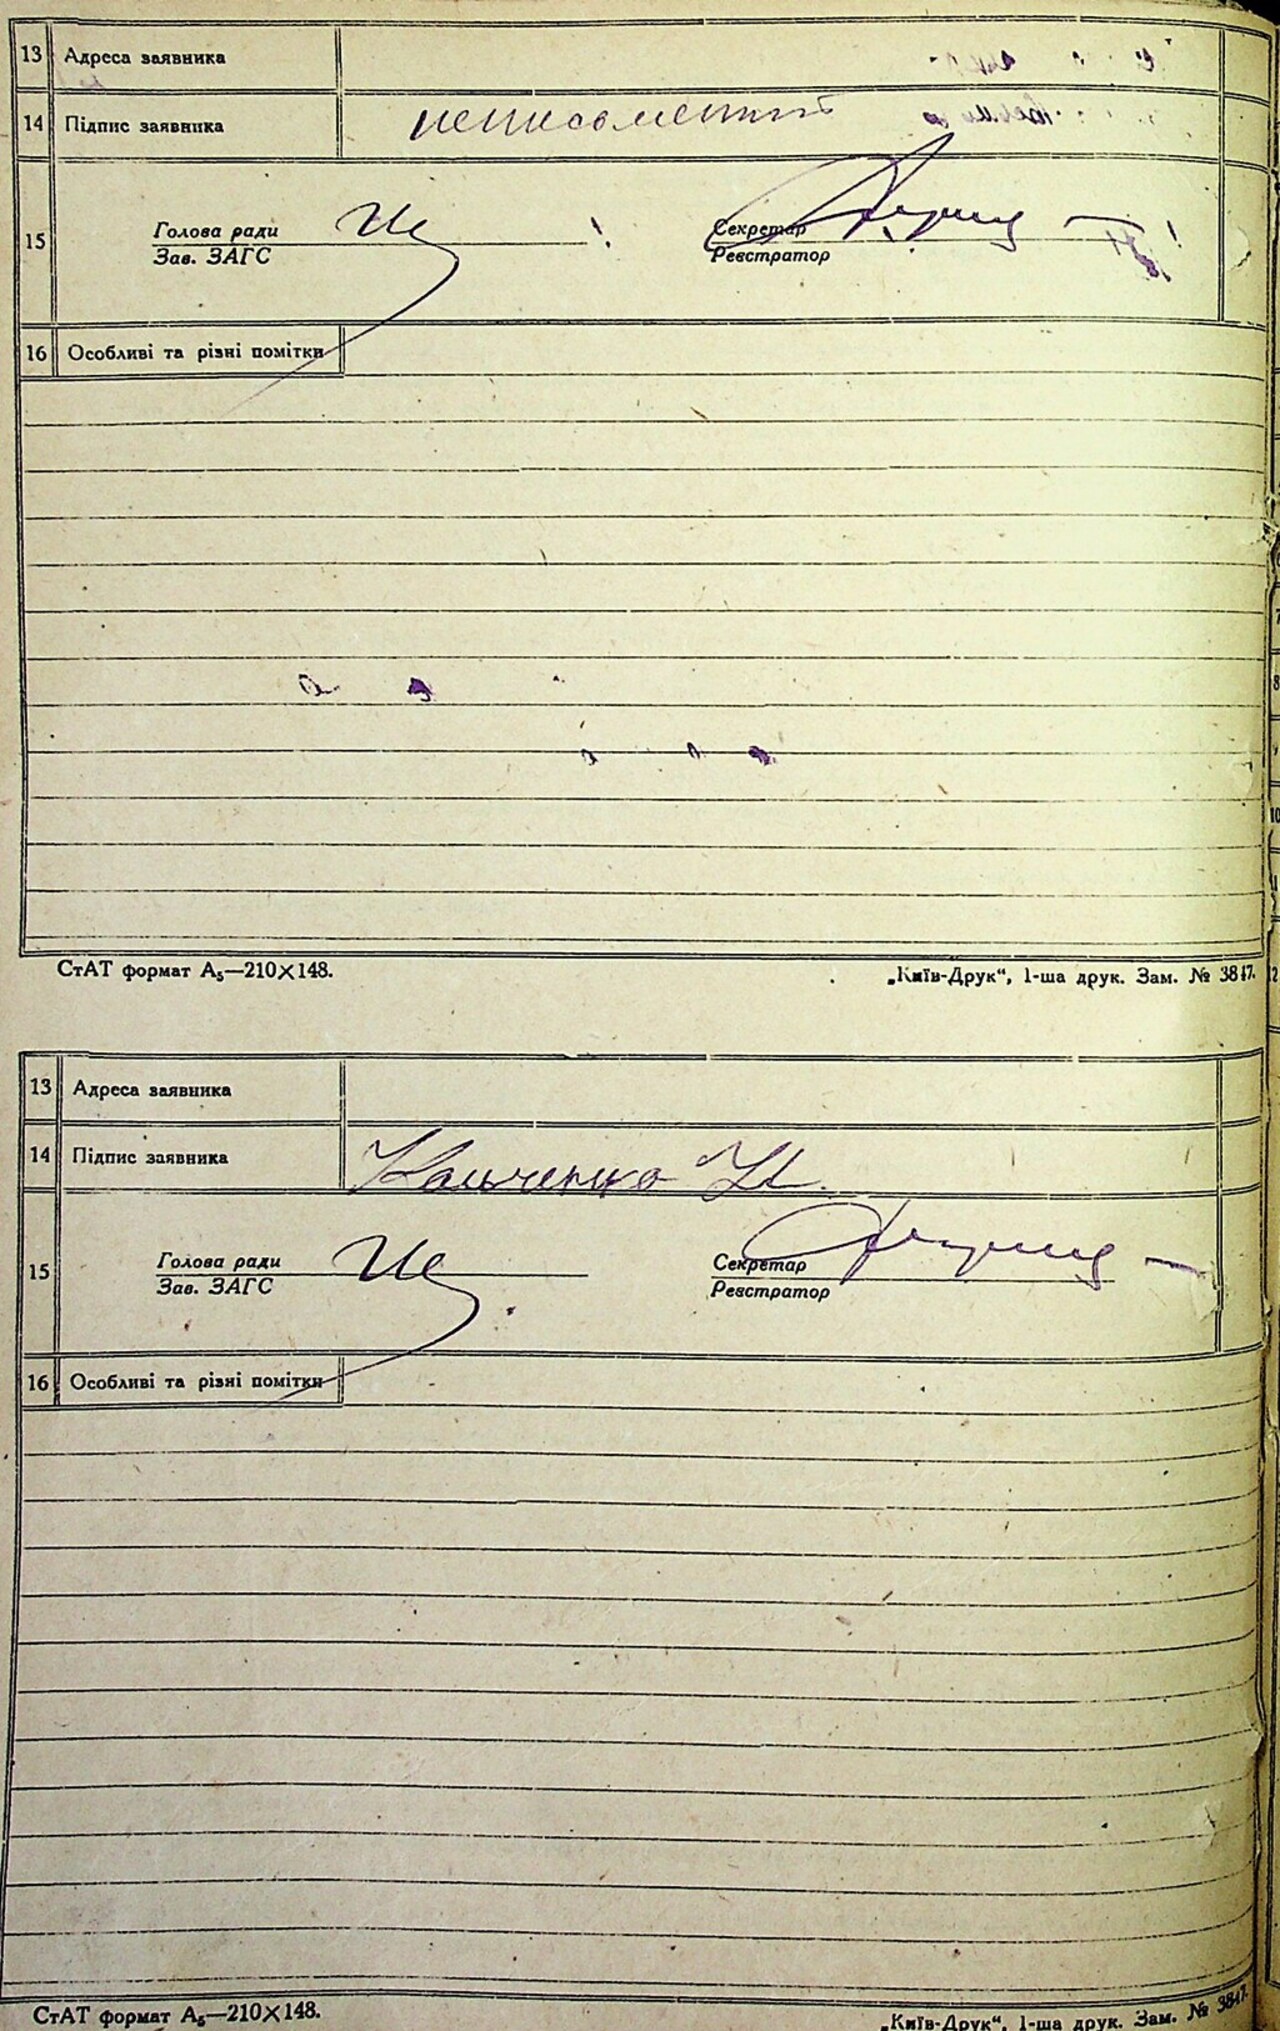 13 Адреса заявника
14 Підпис заявника неписьменний
15 Голова ради Секретар
Зав. ЗАГС Реєстратор
16 Особливі та різні помітки
СтАТ формат А₅—210×148. „Київ-Друк“, 1-ша друк. Зам. № 3817.
13 Адреса заявника
14 Підпис заявника Кальченко
15 Голова ради Секретар
Зав. ЗАГС Реєстратор
16 Особливі та різні помітки
СтАТ формат А₅—210×148. „Київ-Друк“, 1-ша друк. Зам. № 3817.